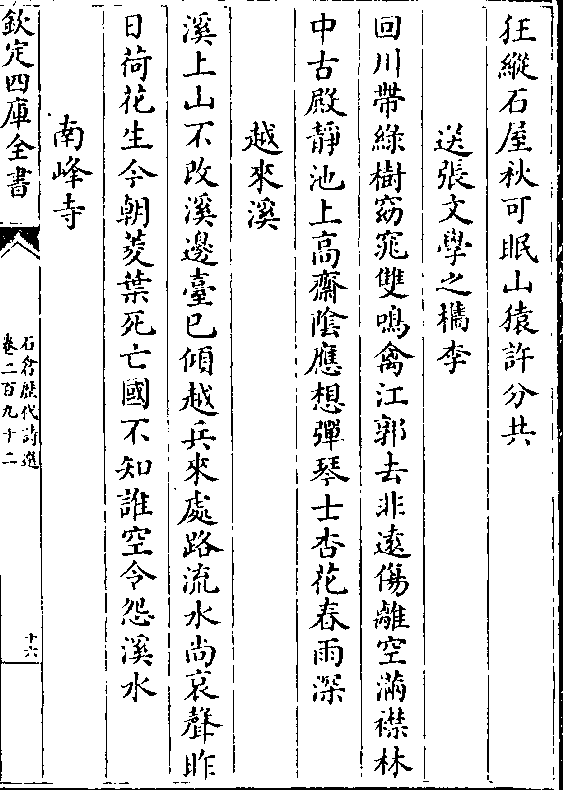 狂縱石屋秋可眠山猿許分共
送張文學之檇李
回川帶綠樹窈窕雙鳴禽江郭去非遠傷離空滿襟林
中古殿靜池上高齋陰應想彈琴士杏花春雨深
越來溪
溪上山不改溪邊臺已傾越兵來處路流水尚哀聲昨
日荷花生今朝菱葉死亡國不知誰空令怨溪水
南峰寺
欽定四庫全書
石倉歷代詩選
卷二百九十二
十六